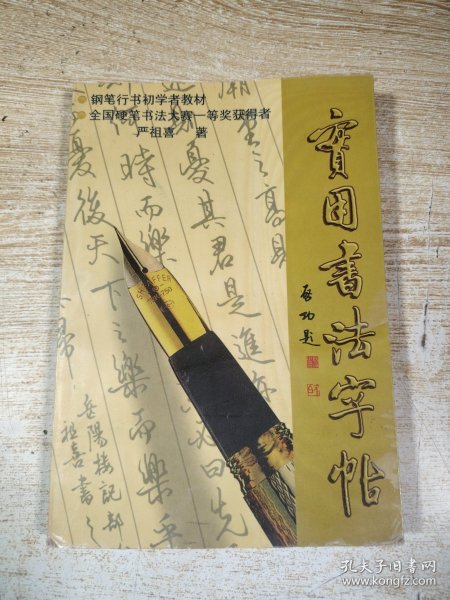 钢笔行书初学者教材
全国硬笔书法大赛一等奖获得者
严祖喜 著
實用書法字帖
启功题
之高則
憂其君是進亦
曰先
時而樂
憂後天下之樂而樂乎
岳陽樓記部
祖喜書
SHEAFFER
750
孔夫子旧书网
www.kongfz.com